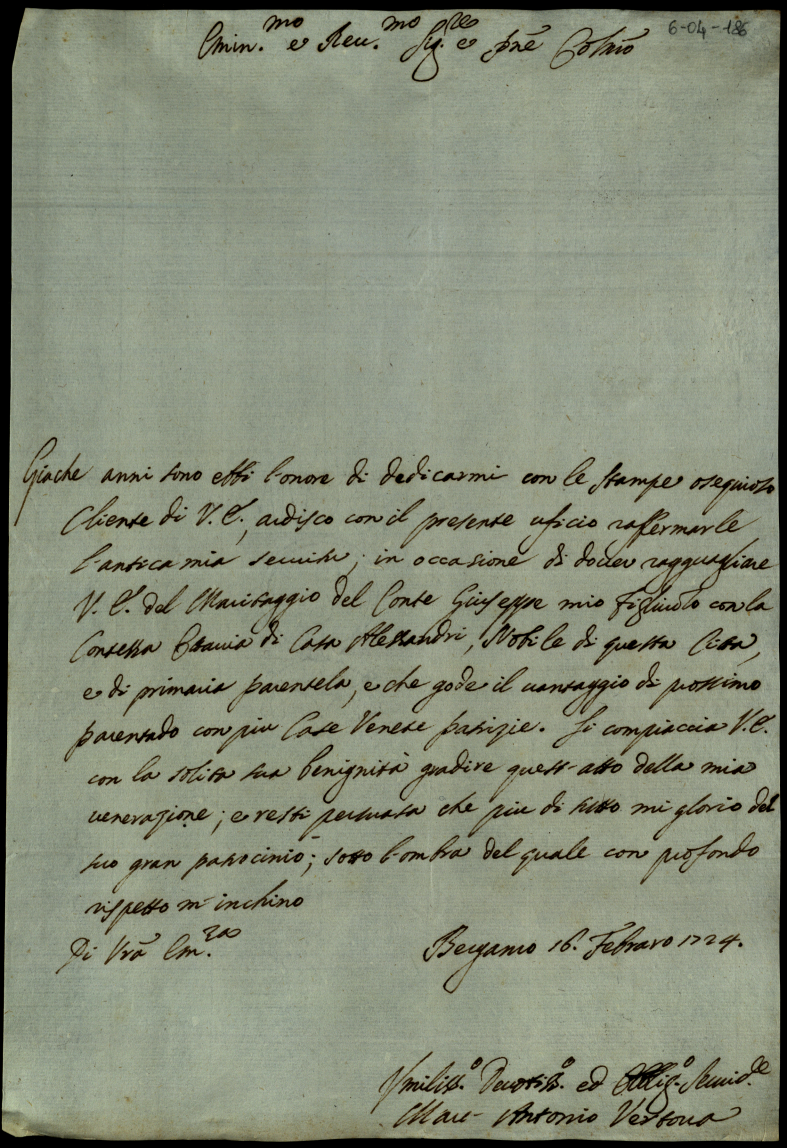 6-04-186
Emin.mo e Reu.mo Sig.re e pñe Colmõ
Giache anni sono ebbi l'onore di dedicarmi con le stampe osequioso
Cliente di V. E., ardisco con il presente uficio raffermarle
l'antica mia seruitu; in occasione di douer ragguagliare
V. E. del Maritaggio del Conte Giuseppe mio figliuolo con la
Contessa Ottauia di Casa Alessandri, Nobile di questa Citta,
e di primaria parentela, e che gode il uantaggio di prossimo
parentado con piu Case Venete patrizie. Si compiaccia V. E.
con la solita sua benignità gradire quest'atto della mia
uenerazione; e resti persuasa che piu di tutto mi glorio del
suo gran patrocinio; sotto l'ombra del quale con profondo
rispetto m'inchino
Di Vrã Em.za
Bergamo 16. Febraro 1724.
Vmiliss.o Deuotiss.o ed Obblig.o Seruid.re
Marc' Antonio Vertoua